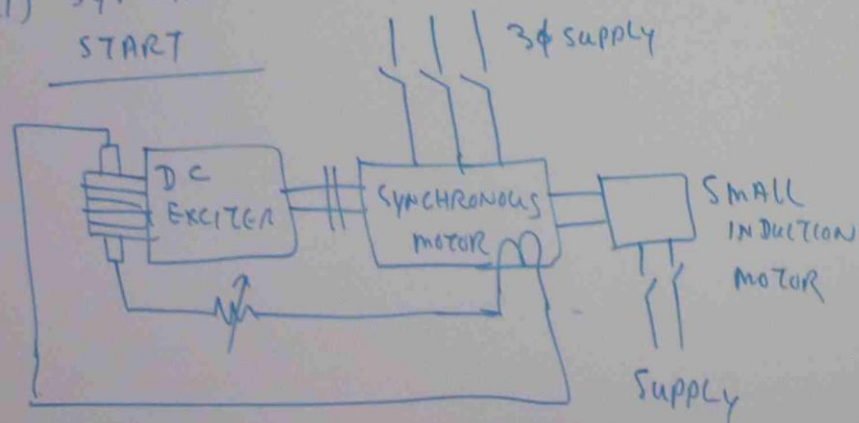 1)
START
3φ SUPPLY
DC
EXCITER
SYNCHRONOUS
MOTOR
SMALL
INDUCTION
MOTOR
SUPPLY